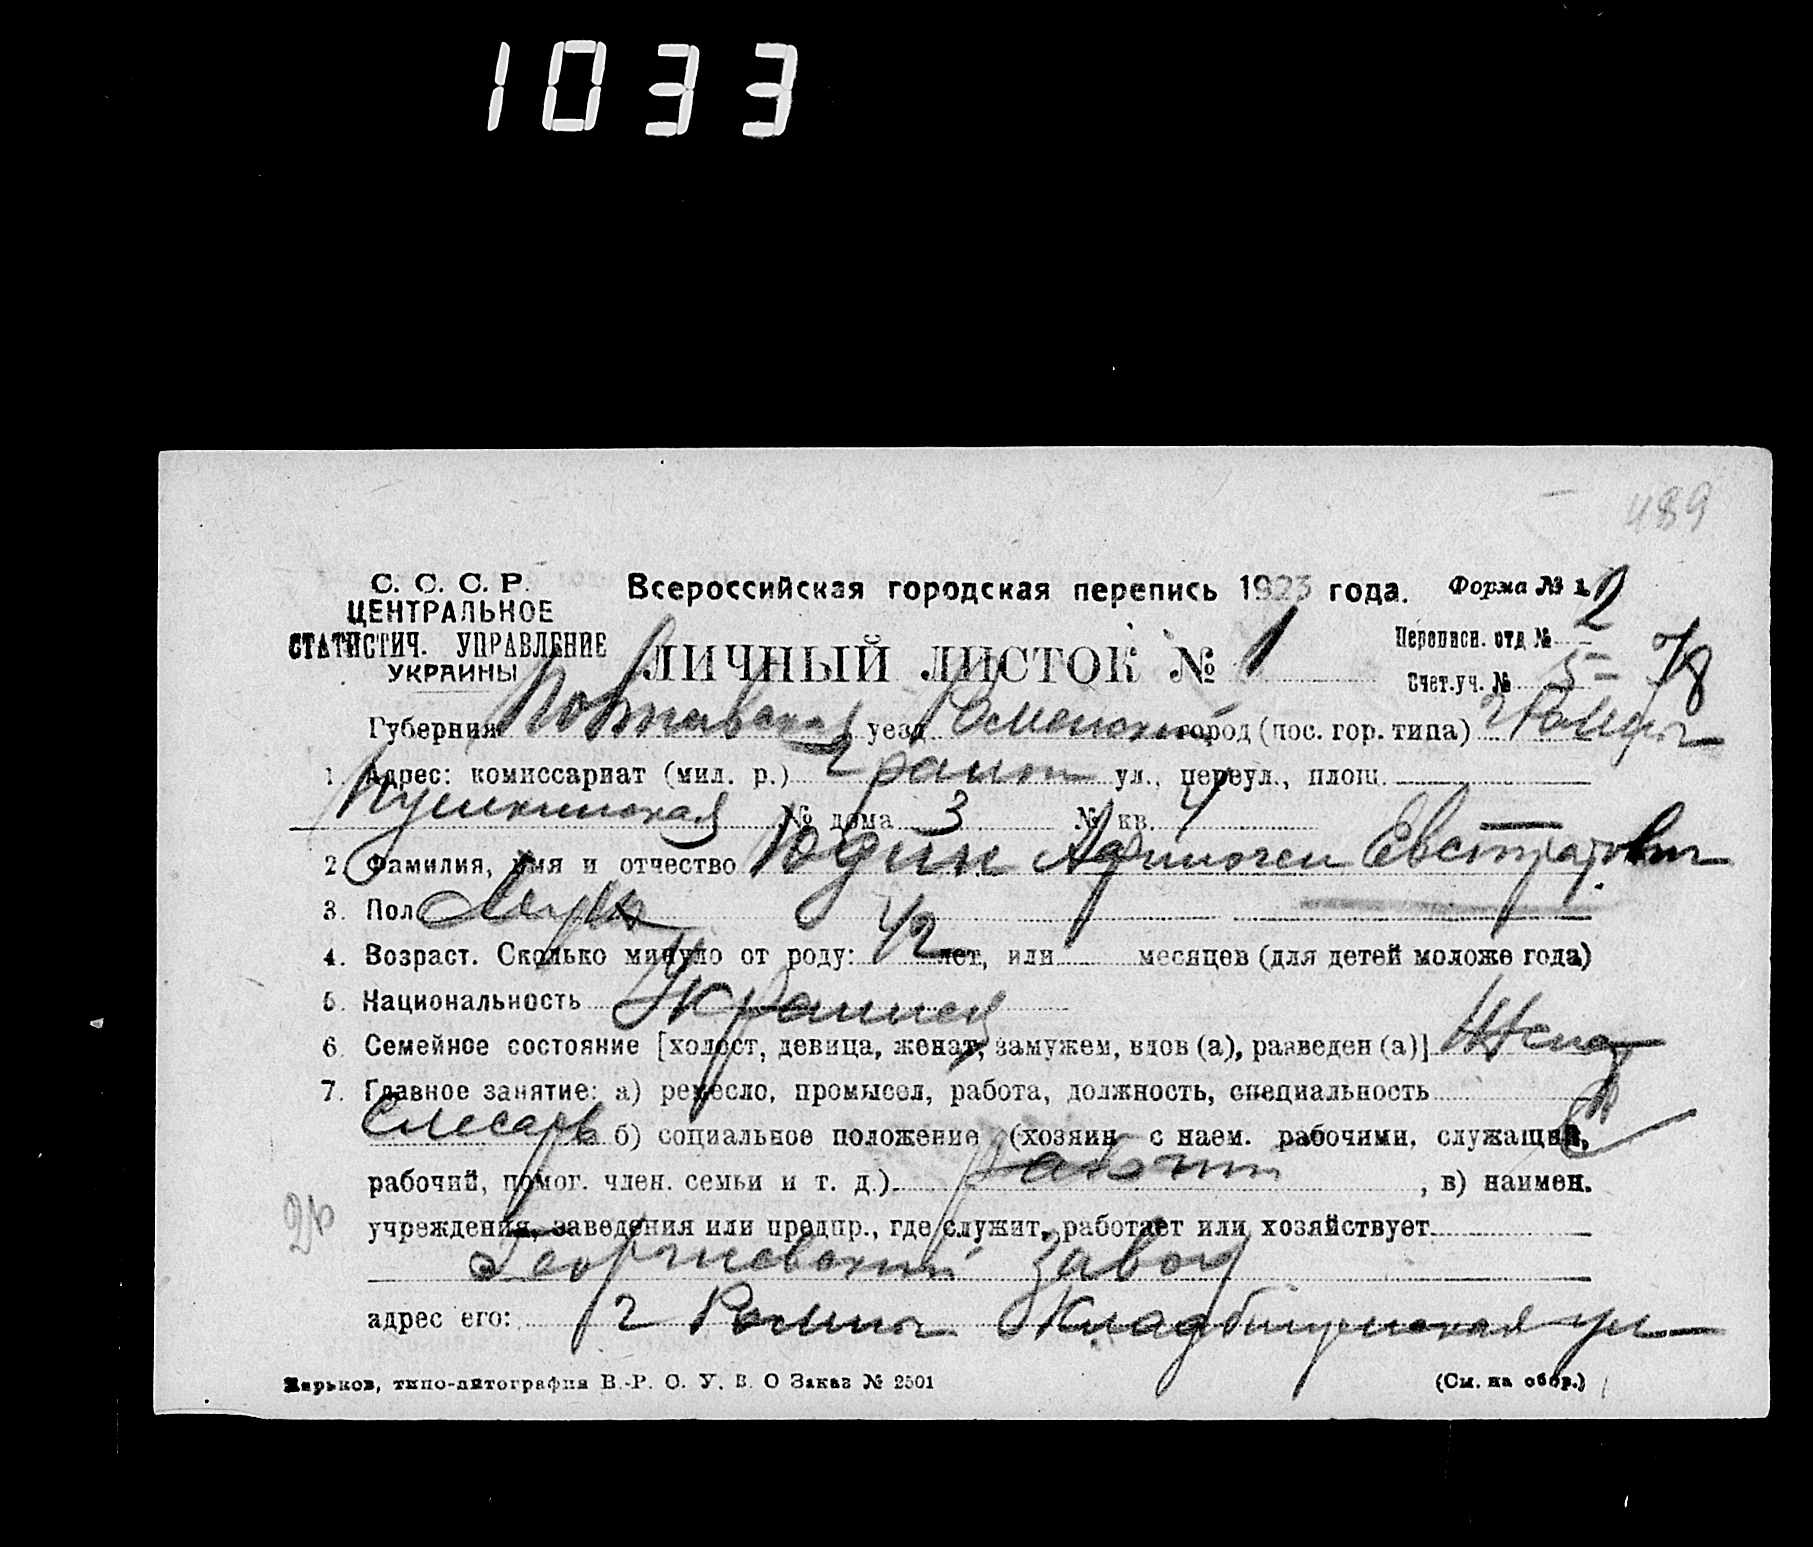 1033
489
С. С. С. Р.
ЦЕНТРАЛЬНОЕ
СТАТИСТИЧ. УПРАВЛЕНИЕ
УКРАИНЫ
Всероссийская городская перепись 1923 года.
Форма № 1.
ЛИЧНЫЙ ЛИСТОК № 1
Переписн. отд № 2
Счет.уч. № 5 78
Губерния Полтавская уезд Роменский город (пос. гор. типа) г Ромны
1. Адрес: комиссариат (мил. р.) 2 район ул., переул., площ.
Пушкинская № дома 3 № кв. 4
2. Фамилия, имя и отчество Юдин Евстратович
3. Пол Муж
4. Возраст. Сколько минуло от роду: 42 лет, или месяцев (для детей моложе года)
5. Национальность Украинец
6. Семейное состояние [холост, девица, женат, замужем, вдов (а), разведен (а)] Женат
7. Главное занятие: а) ремесло, промысел, работа, должность, специальность
Слесарь б) социальное положение (хозяин с наем. рабочими, служащий,
рабочий, помог. член. семьи и т. д.) рабочий , в) наимен.
учреждения, заведения или предпр., где служит, работает или хозяйствует
Георгиевский завод
адрес его: г Ромны Кладбищенская ул
Харьков, типо-литография В.-Р. О. У. В. О Заказ № 2501
(См. на обор.)